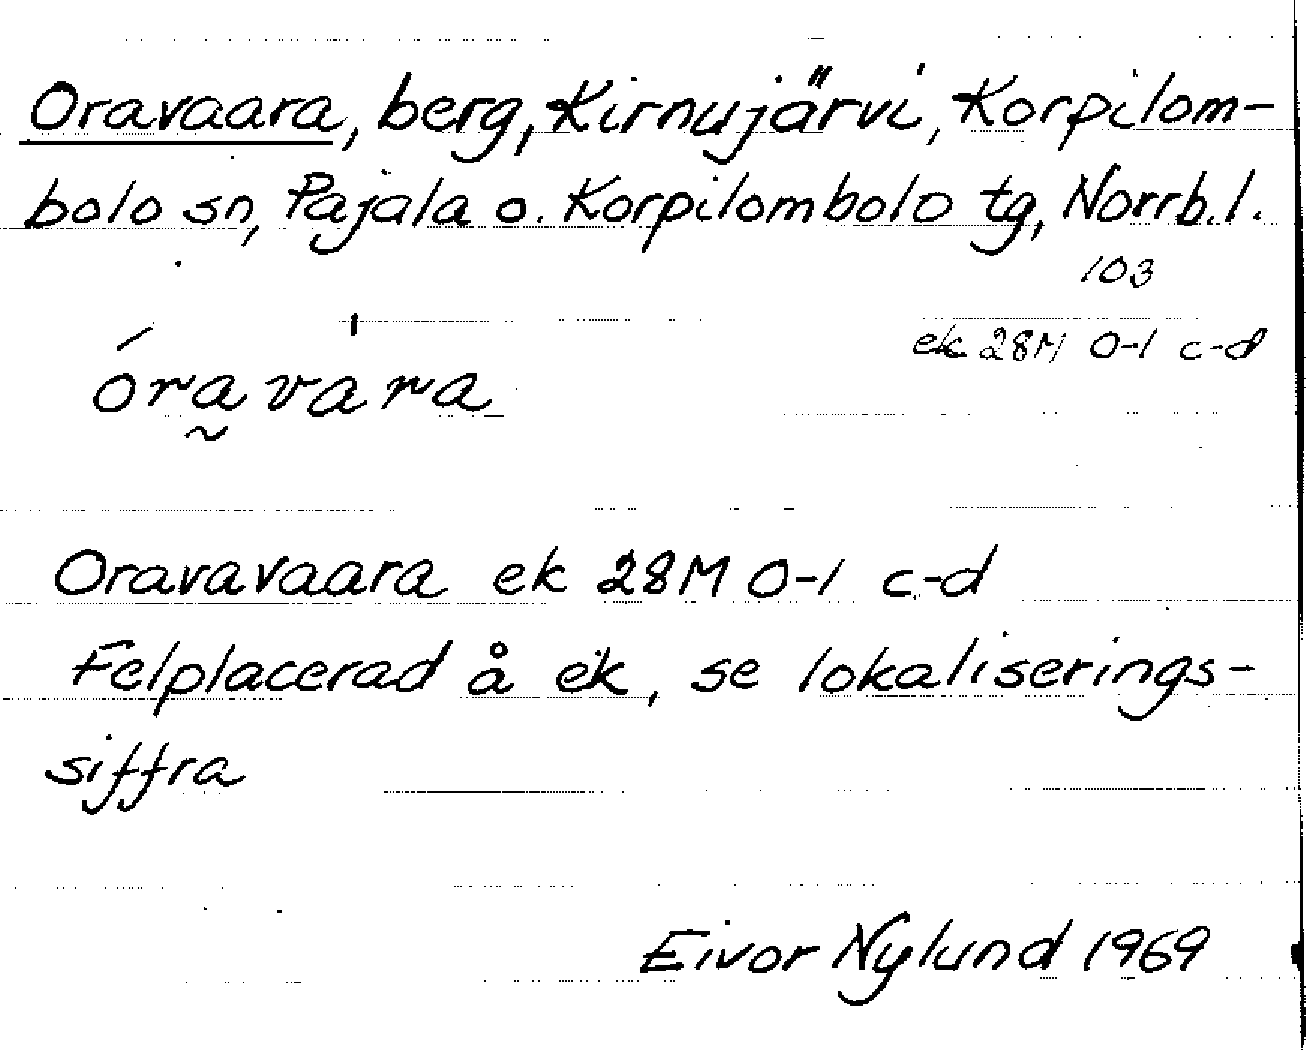 Oravaara, berg, Kirnujärvi, Korpilom-
bolo sn, Pajala o. Korpilombolo tg, Norrb.l.
103
ek 28M 0-1 c-d
óra̰va̍ra
Oravavaara ek 28M 0-1 c-d
Felplacerad å ek, se lokaliserings-
siffra
Eivor Nylund 1969